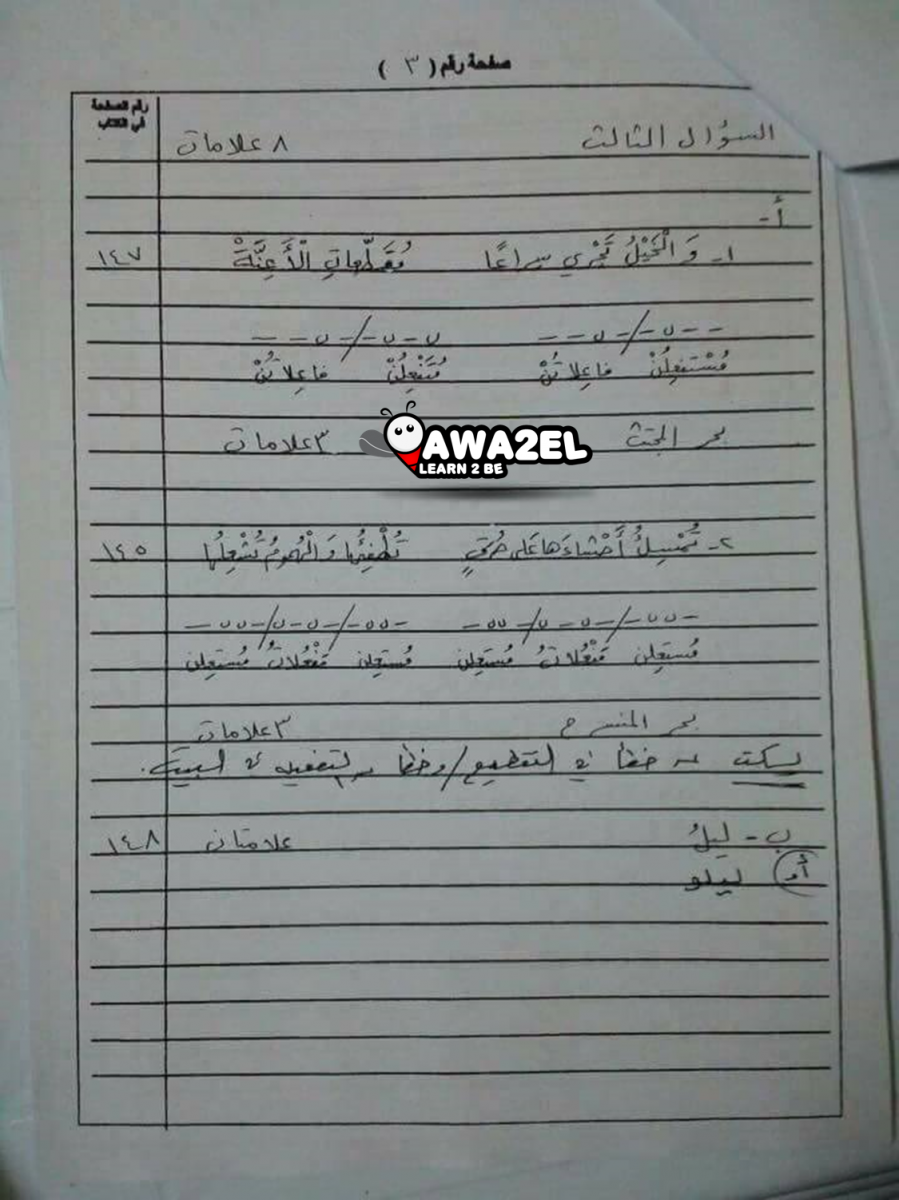 صفحة رقم ( ٣ )
رقم الصفحة في الكتاب
السؤال الثالث ٨ علامات
أ-
١- وَ الْخَيْلُ تَجْري سِراعًا مُقَطِّعاتِ الْأَعِنَّةْ ١٤٧
- - ں - / - ں - - ں - ں - / - ں - -
مُسْتَفعِلُنْ فاعِلاتُنْ مُتَفْعِلُنْ فاعِلاتُنْ
بحر المجتث ٣ علامات
AWA2EL
LEARN 2 BE
٢- تُمْسِكُ أَحْشاءَها عَلى حُرَقٍ تُطْفِئُها وَ الْهُمومُ تُشْعِلُها ١٤٥
- ں ں - / - ں - ں / - ں ں - - ں ں - / - ں - ں / - ں ں -
مُستَعِلن مَفْعُلاتُ مُستَعِلن مُستَعِلن مَفْعُلاتُ مُستَعِلن
بحر المنسرح ٣ علامات
يسكت عن خطأ في التقطيع / وخطأ من التفعيلة في البيت.
ب- ليلُ علامتان ١٤٨
أو ليلو